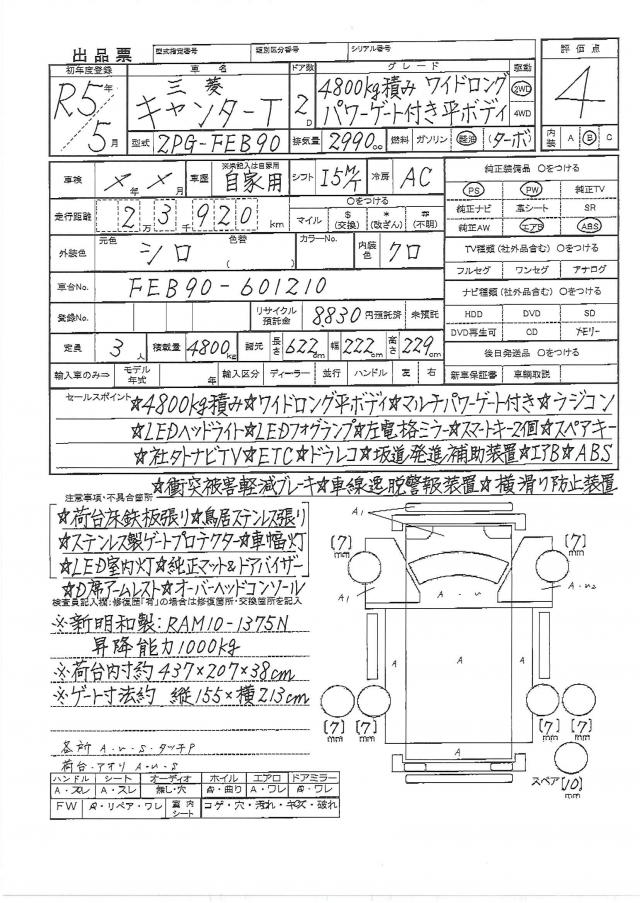 出品票 型式指定番号 類別区分番号 シリアル番号
初年度登録 車名 ドア数 グレード 駆動 評価点
R5年 三菱 4800kg積み ワイドロング 2WD 4
5月 キャンターT 2D パワーゲート付き平ボディ 4WD
型式 2PG-FEB90 排気量 2990cc 燃料 ガソリン 軽油 (ターボ) 内装 A B C
車検 ×年×月 車歴 ※未記入は自家用 自家用 シフト I5M/T 冷房 AC 純正装備品 ○をつける
PS PW 純正TV
走行距離 2万3千920km ○をつける マイル $(交換) *(改ざん) #(不明) 純正ナビ 革シート SR
純正AW エアB ABS
外装色 元色 シロ 色替 ( ) カラーNo. 内装色 クロ TV種類(社外品含む) ○をつける
フルセグ ワンセグ アナログ
車台No. FEB90-601210 ナビ種類(社外品含む) ○をつける
登録No. リサイクル預託金 8,830円預託済 未預託 HDD DVD SD
DVD再生可 CD メモリー
定員 3人 積載量 4800kg 諸元 長さ 622cm 幅 222cm 高さ 229cm 後日発送品 ○をつける
輸入車のみ⇒ モデル年式 年 輸入区分 ディーラー 並行 ハンドル 左 右 新車保証書 車輌取説
セールスポイント ☆4800kg積み☆ワイドロング平ボディ☆マルチパワーゲート付き☆ラジコン
☆LEDヘッドライト☆LEDフォグランプ☆左電格ミラー☆スマートキー2個☆スペアキー
☆社外ナビTV☆ETC☆ドラレコ☆坂道発進補助装置☆エアB☆ABS
☆衝突被害軽減ブレーキ☆車線逸脱警報装置☆横滑り防止装置
注意事項・不具合箇所
☆荷台床鉄板張り☆鳥居ステンレス張り
☆ステンレス製ゲートプロテクター☆車幅灯
☆LED室内灯☆純正マット&ドアバイザー
☆D席アームレスト☆オーバーヘッドコンソール
検査員記入欄:修復歴「有」の場合は修復箇所・交換箇所を記入
※新明和製:RAM10-1375N
昇降能力1000kg
※荷台内寸約437×207×38cm
※ゲート寸法約 縦155×横213cm
各所 A・U・S・タッチP
荷台・アオリ A・U・S
ハンドル シート オーディオ ホイル エアロ ドアミラー
A・スレ A・スレ 無し・穴 曲り A・ワレ ワレ
FW リペア・ワレ 室内シート コゲ・穴・汚れ・キズ・破れ
A1
[7]mm [7]mm
A1 A A A・U2
A
[7]mm [7]mm [7]mm [7]mm
A
スペア[10]mm